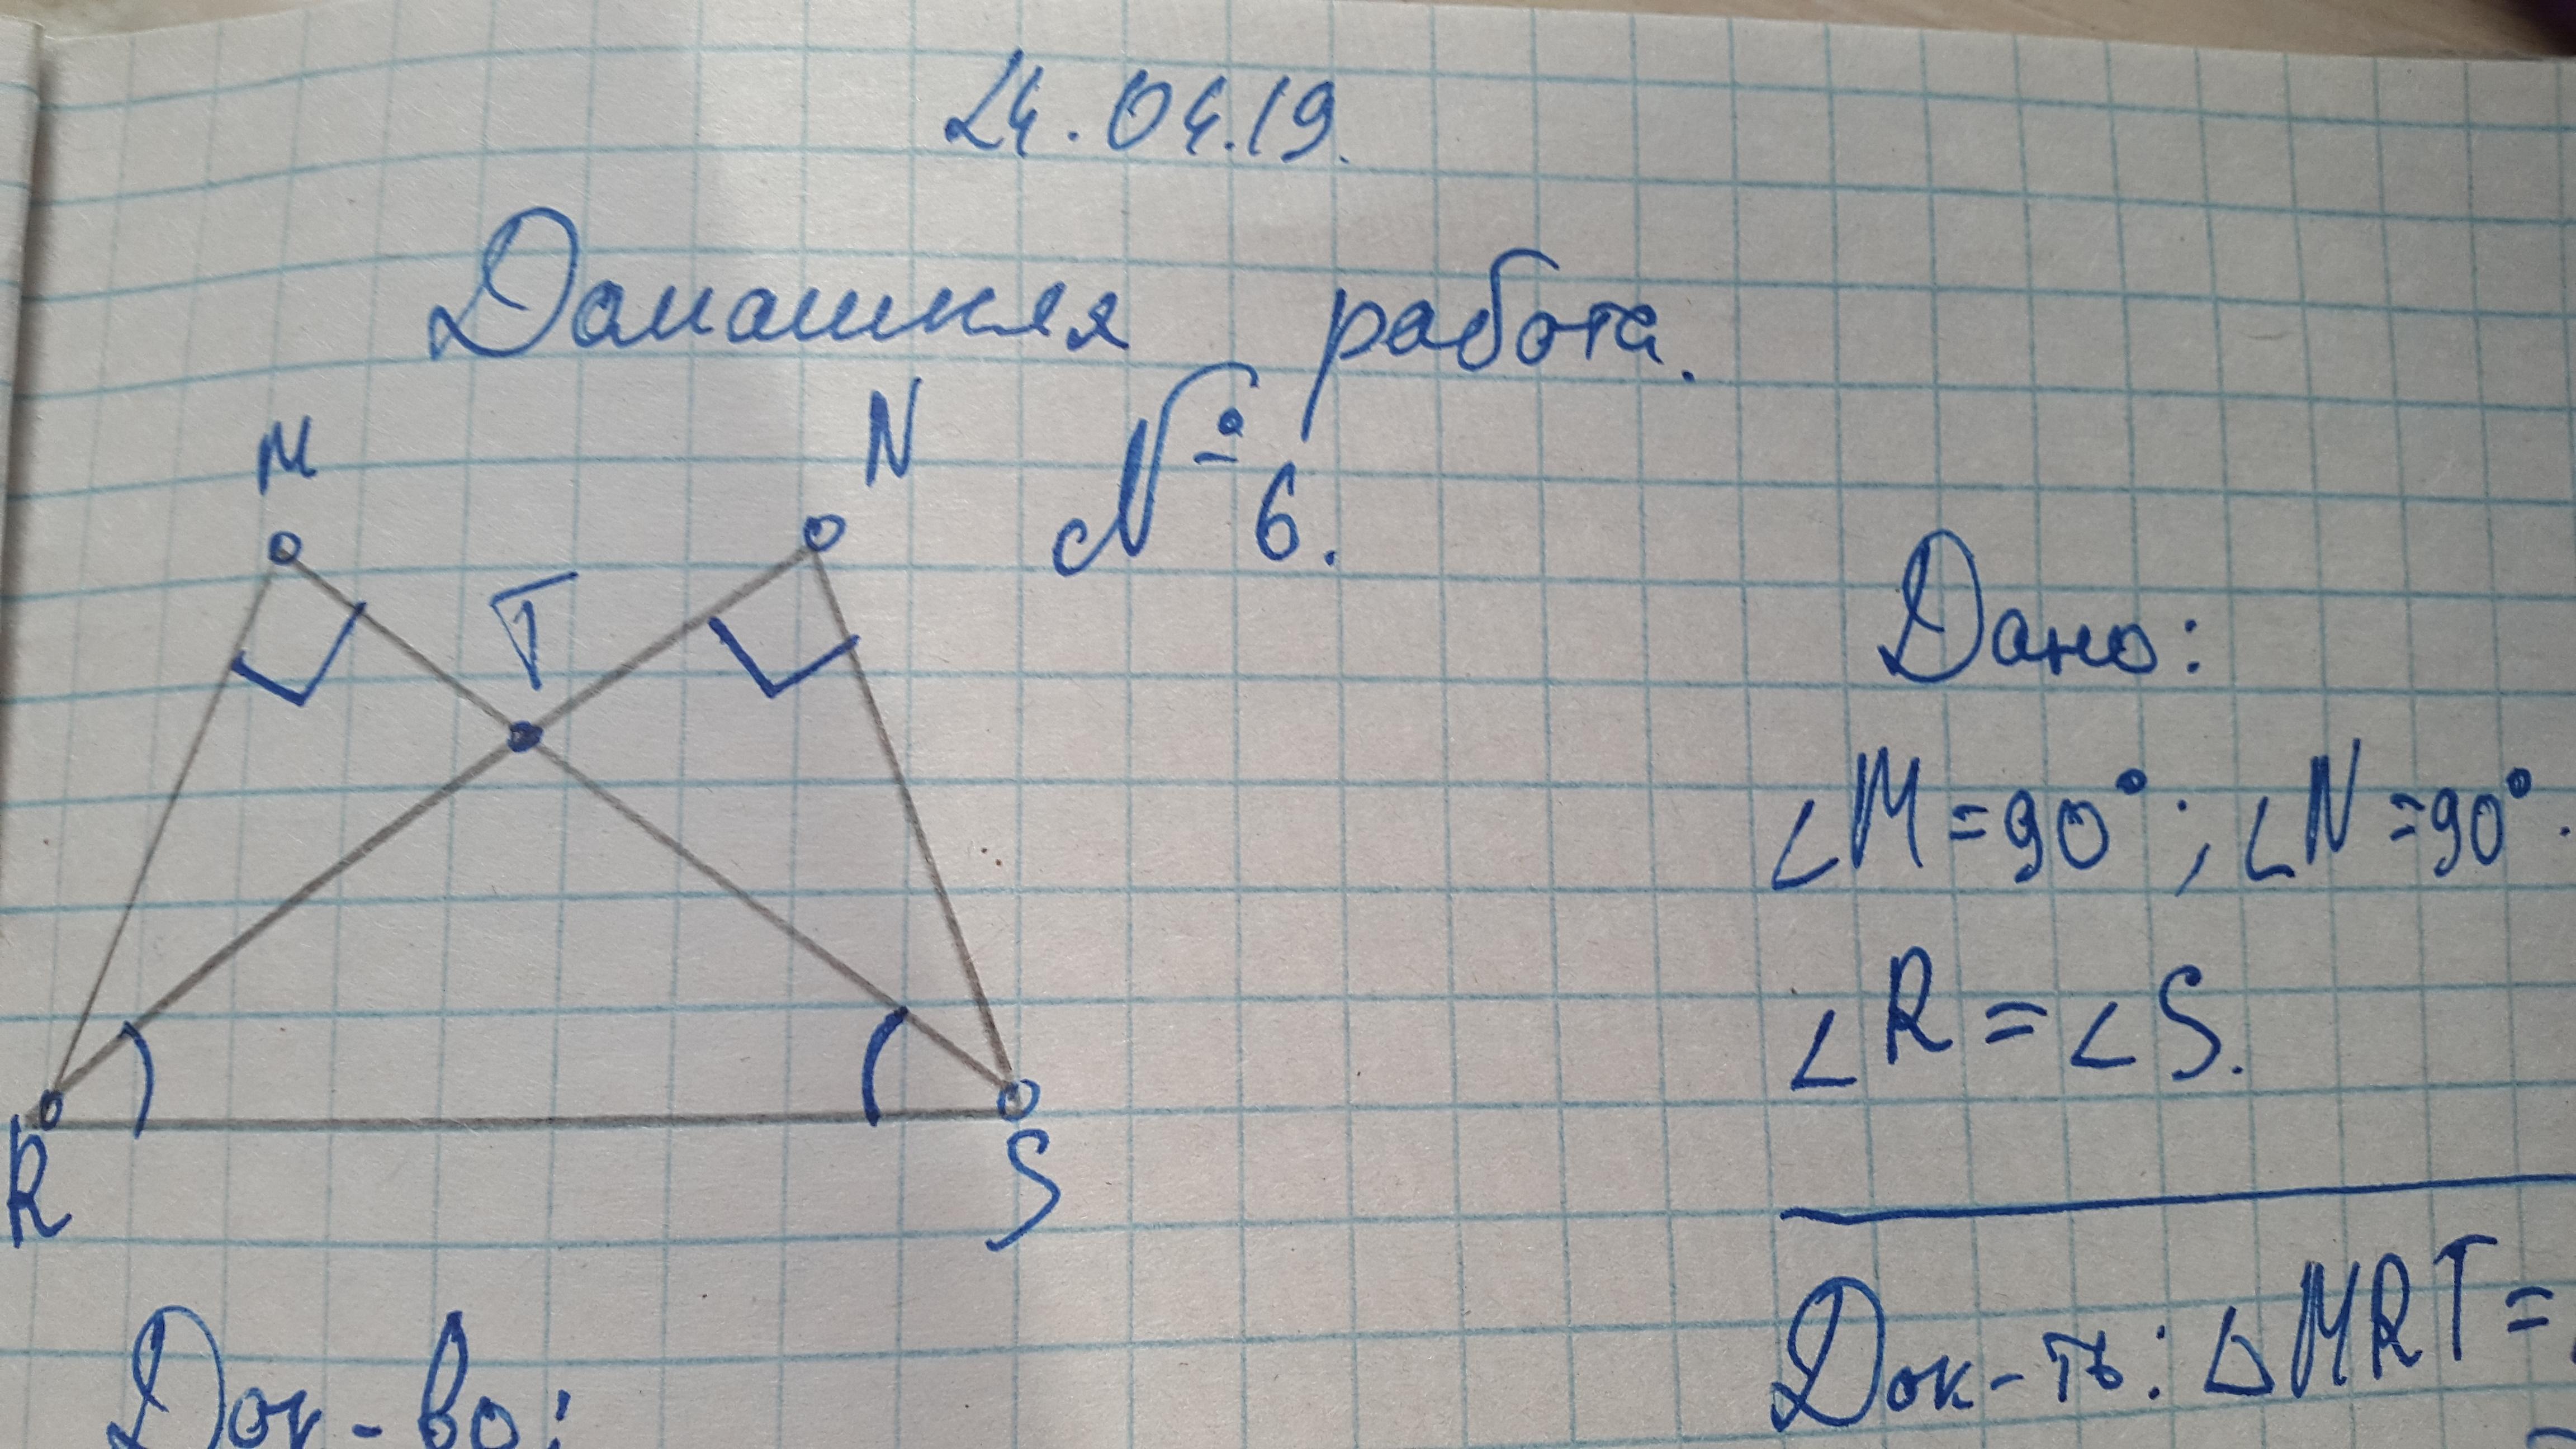 24.04.19.
Домашняя работа.
№ 6.
M N
T
R S
Дано:
∠M=90°; ∠N=90°.
∠R=∠S.
Док-ть: △MRT=
Док-во: